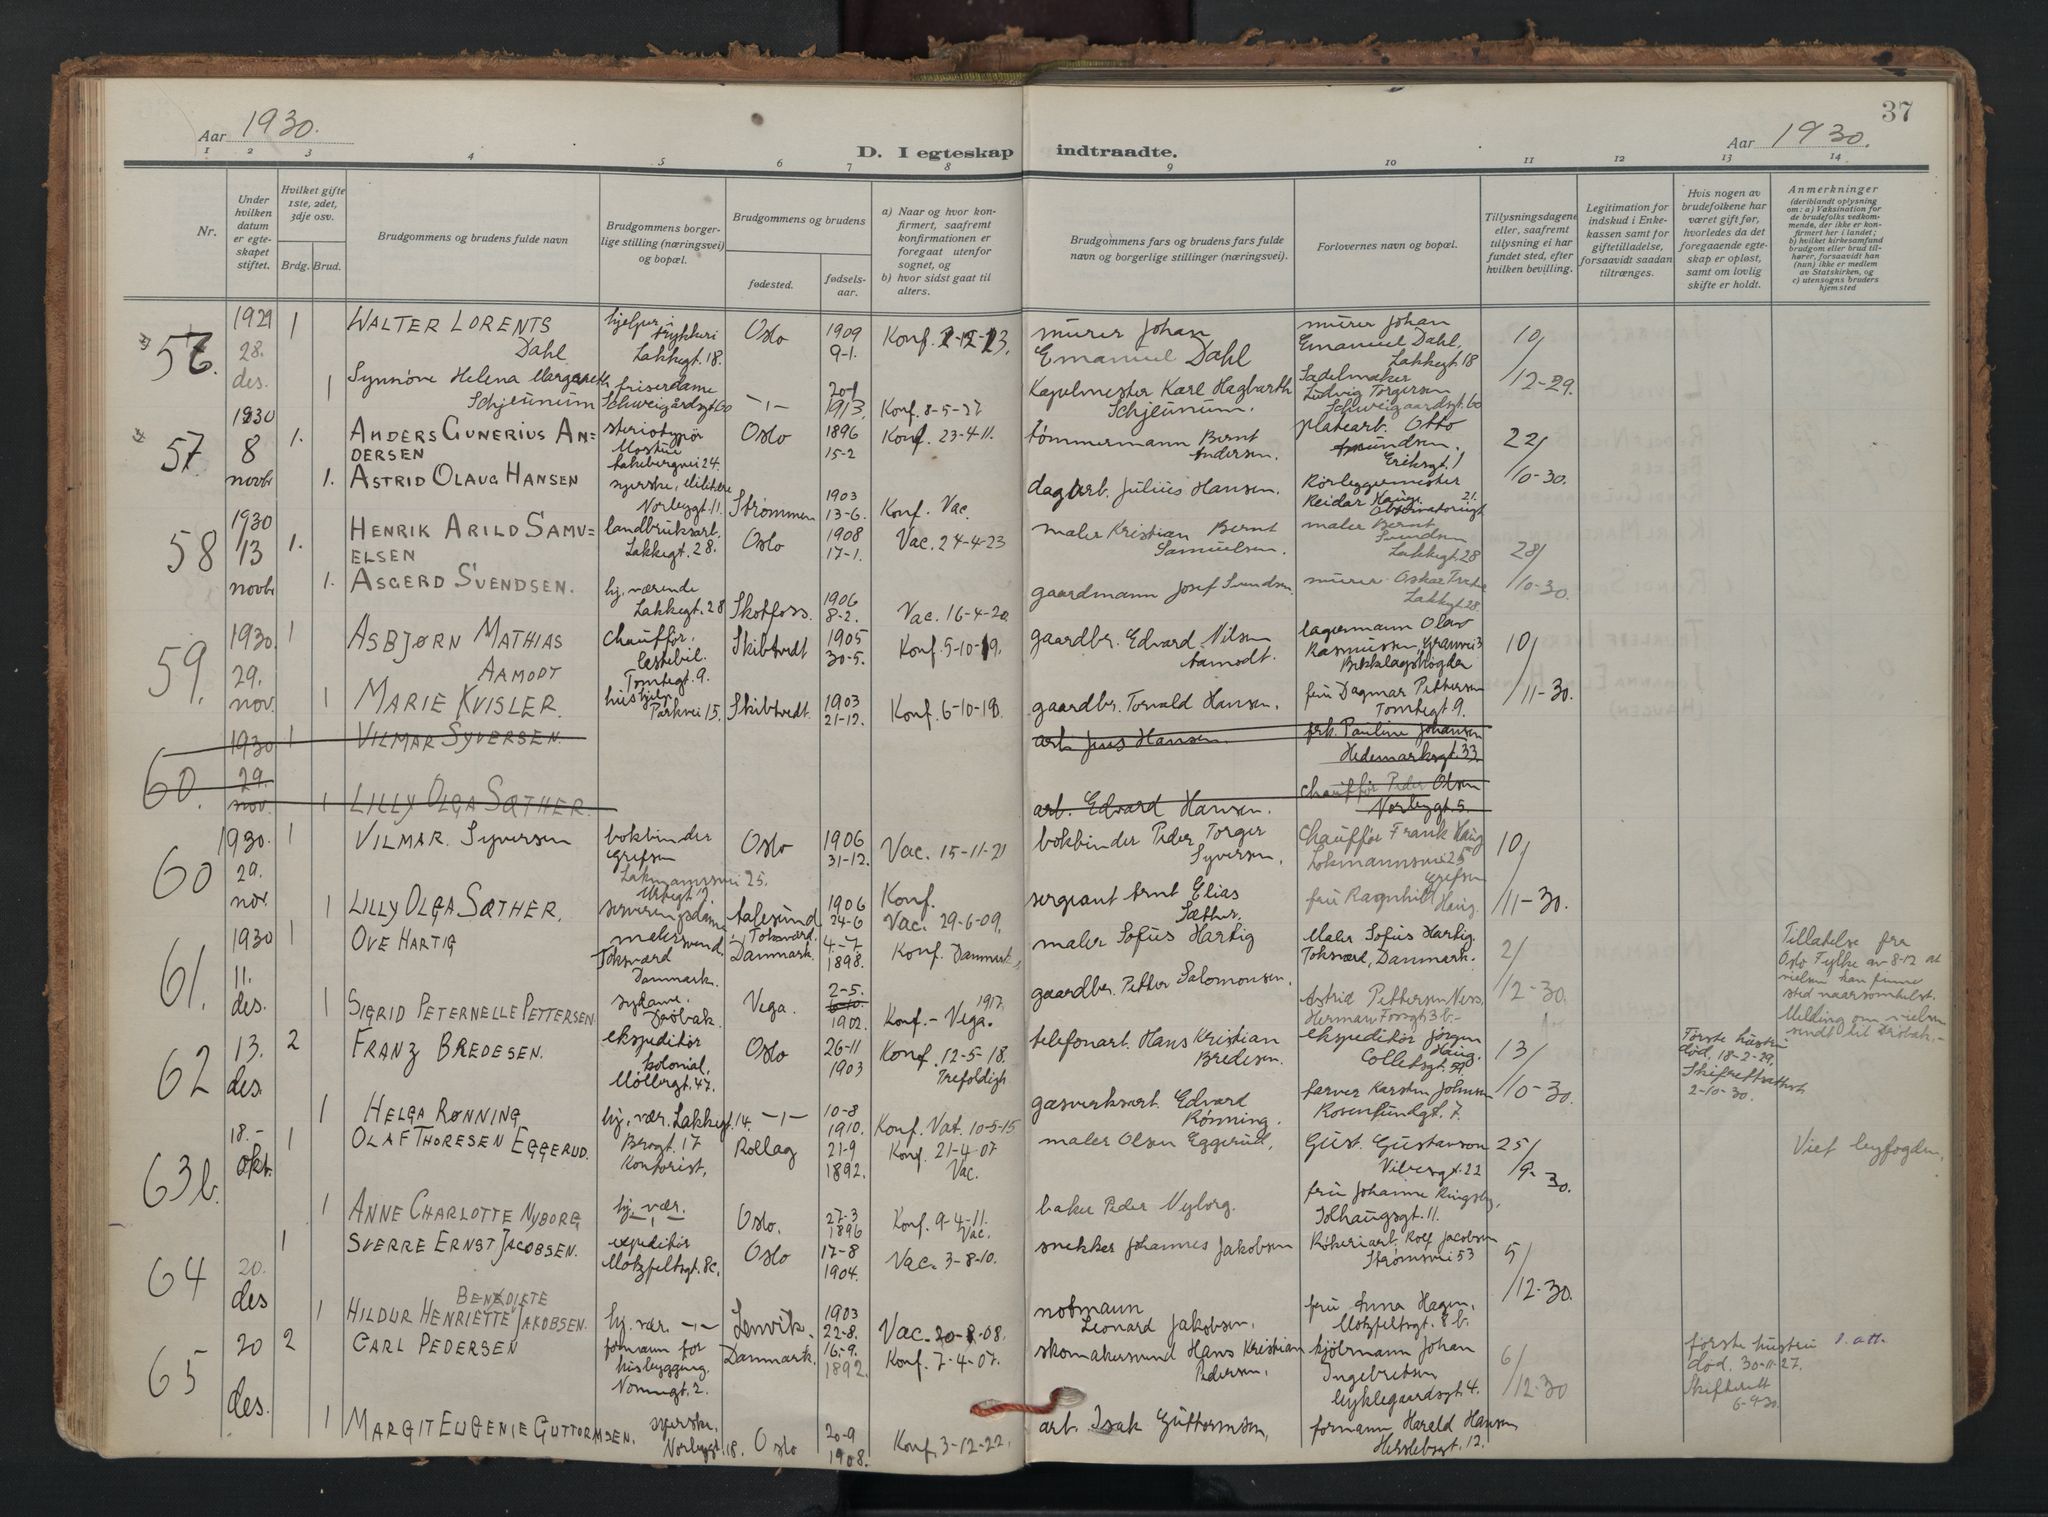 37
Aar 1930.
Aar 1930.
D. I egteskap indtraadte.
1 2 3 4 5 6 7 8 9 10 11 12 13 14
Nr.
Under hvilken datum er egteskapet stiftet.
Hvilket gifte 1ste, 2det, 3dje osv.
Brdg. Brud.
Brudgommens og brudens fulde navn
Brudgommens borgerlige stilling (næringsvei) og bopæl.
Brudgommens og brudens
fødested.
fødselsaar.
a) Naar og hvor konfirmert, saafremt konfirmationen er foregaat utenfor sognet, og
b) hvor sidst gaat til alters.
Brudgommens fars og brudens fars fulde navn og borgerlige stillinger (næringsvei).
Forlovernes navn og bopæl.
Tillysningsdagene eller, saafremt tillysning ei har fundet sted, efter hvilken bevilling.
Legitimation for indskud i Enkekassen samt for giftetilladelse, forsaavidt saadan tiltrænges.
Hvis nogen av brudefolkene har været gift før, hvorledes da det foregaaende egteskap er opløst, samt om lovlig skifte er holdt.
Anmerkninger
(deriblandt oplysning om: a) Vaksination for de brudefolks vedkommende, der ikke er konfirmert her i landet; b) hvilket kirkesamfund brudgom eller brud tilhører, forsaavidt han (hun) ikke er medlem av Statskirken, og c) utensogns bruders hjemsted
56. 1929 28. des. 1 WALTER LORENTS Dahl hjelper i trykkeri Lakkegt. 18. Oslo 1909 9-1. Konf. murer Johan Emanuel Dahl murer Johan Emanuel Dahl, Lakkegt 18 10/12-29.
1 Synnøve Helena Margareth Schjeunum friserdame Schweigårdsgt 60 -"- 20-1 1913. Konf. 8-5-27 Kapelmester Karl Hagbarth Schjeunum. Sadelmaker Ludvig Torgersen Schweigaardsgt. 60
57 1930 8 novbr 1. ANDERS GUNERIUS ANDERSEN steriotypør Oslo 1896 15-2 Konf 23-4-11. tømmermann Bernt Andersen. platearb. Otto Amundsen. Eriksgt. 1 22/10-30.
1. ASTRID OLAUG HANSEN syerske, Norbygt. 11. Strømmen 1903 13-6. Konf. Vac. dagarb. Julius Hansen. Rørleggermester Reidar Haug. Observatoriegt 21.
58 1930 13 novbr 1. HENRIK ARILD SAMUELSEN landbruksarb. Lakkegt. 28. Oslo 1908 17-1. Vac. 24-4-23 maler Kristian Bernt Samuelsen. maler Bernt Svendsen Lakkegt. 28 28/10-30.
1. ASGERD SVENDSEN. hj. værende Lakkegt. 28 Skotfoss. 1906 8-2. Vac. 16-4-20. gaardmann Josef Svendsen murer Oskar Lakkegt 28.
59. 1930. 29. nov. 1 ASBJØRN MATHIAS AAMODT chauffør, lastebil. Tomtegt. 9. Skibtvedt 1905 30-5. Konf. 5-10-19. gaardbr. Edvard Nilsen Aamodt. lagermann Olav Rasmussen, Granvei 3 Bekkelagshøgda 10/11-30.
1 MARIE KVISLER. hushjelp Parkvei 15. Skibtvedt. 1903 21-12. Konf. 6-10-18. gaardbr. Torvald Hansen. fru Dagmar Pettersen Tomtegt 9.
60. 1930 29. nov. 1 VILMAR SYVERSEN. arb. Jens Hansen frk. Pauline Johansen Hedemarksgt. 33.
1 LILLY OLGA SÆTHER. arb. Edvard Hansen. chauffør Peder Olsen Norbygt 5.
60 1930. 29. nov. 1 VILMAR Syversen bokbinder Grefsen Lokmannsvei 25. Oslo 1906 31-12. Vac. 15-11-21 bokbinder Peder Torger Syversen. Chauffør Frank Haug Lokmannsvei 25 Grefsen 10/11-30.
1 LILLY OLGA SÆTHER. Urtegt 2. serveringsdame Aalesund 1906 24-6 Konf. Vac. 29-6-09. sergeant Arnt Elias Sæther. fru Ragnhild Haug.
61. 1930 11. des. 1 OVE HARTIG malersvend Toksværd Danmark. Toksværd. Danmark. 4-7- 1898. Konf. Danmark maler Sofus Hartig Maler Sofus Hartig. Toksværd, Danmark. 2/12-30. Tillatelse fra Oslo Fylke av 8-12 at vielsen kan finne sted naarsomhelst. Melding om vielsen sendt til Drøbak.-
1 SIGRID PETERNELLE PETTERSEN Drøbak. Vega. 2-5. 1902. Konf. - Vega. 1917. gaardbr. Petter Salomonsen. Astrid Pettersen Ness, Herman Fossgt 3 b.-
62 13. des. 2 FRANZ BREDESEN. ekspeditør kolonial, Møllergt. 47. Oslo 26-11 1903 Konf. 12-5-18. Trefoldigh. telefonarb. Hans Kristian Bredesen. ekspeditør Jørgen Haug. Colletsgt. 59 13/10-30. Første hustru død, 18-2-29, Skifterettsattest 2-10-30.
1 HELGA RØNNING hj. vær. Lakkegt. 14. -"- 10-8 1910. Konf. Vat. 10-5-15 gasverksarb. Edvard Rønning. farver Karsten Johnsen Rosenlundgt. 7.
63 b. 18.- okt. 1 OLAF THORESEN EGGERUD. Brogt. 17 Kontorist, Rollag 21-9 1892. Konf. 21-4-07 Vac. maler Olsen Eggerud, Gust. Gustavson Vibesgt. 22 25/9-30. Viet byfogden,
1 ANNE CHARLOTTE NYBORG hj. vær. Oslo. 27-3 1896 Konf. 9-4-11. Vac. baker Peder Nyborg. fru Johanne Ringsby, Solhaugsgt. 11.
64 20. des 1 SVERRE ERNST JACOBSEN. expeditør Motzfeltsgt. 8c, Oslo 17-8 1904. Vac. 3-8-10. snekker Johannes Jakobsen Røkeriarb. Rolf Jacobsen Strømsvei 53 5/12-30.
1 HILDUR HENRIETTE BENEDIKTE JAKOBSEN. hj. vær. -"- Lenvik. 1903 22-8. Vac. 20-8-08. notmann Leonard Jakobsen. fru Anna Hagen, Motzfeltsgt. 8 b.
65 20 des. 2 CARL PEDERSEN formann for husbygging. Nonnegt. 2. Danmark. 16-9. 1892. Konf. 7-4-07. skomakersvend Hans Kristian Pedersen. kjørmann Johan Ingebretsen Nyklegaardsgt. 4. 6/12-30 første hustru død. 30-11-27. Skifterett 6-9-30. 1. att.
1 MARGIT EUGENIE GUTTORMSEN. syerske, Norbygt. 18. Oslo 20-9 1908. Konf. 3-12-22. arb. Isak Guttormsen, formann Harald Hansen Herslebsgt. 12.